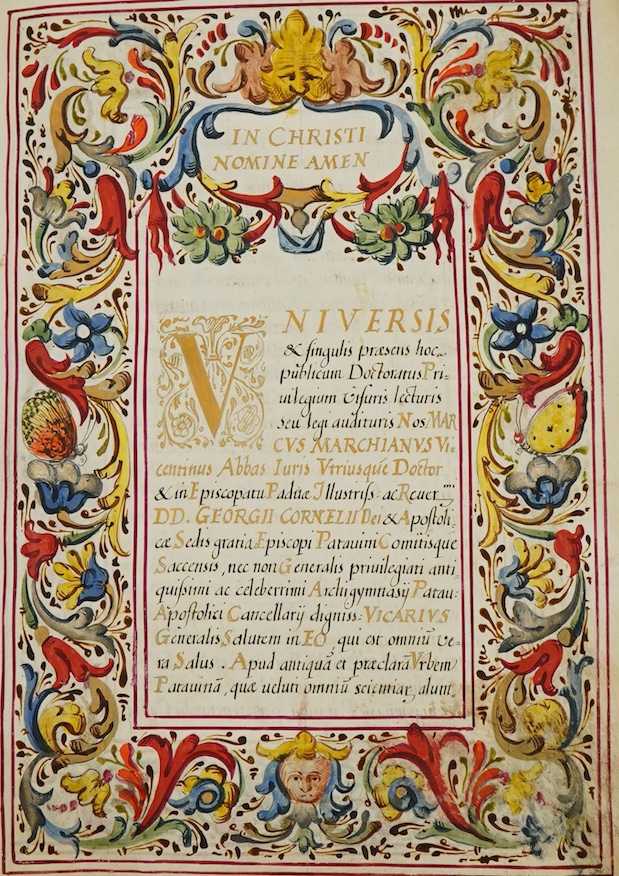 IN CHRISTI
NOMINE AMEN
VNIVERSIS
& singulis præsens hoc
publicum Doctoratus Pri-
uilegium visuris lecturis
seu legi audituris Nos MAR
CVS MARCHIANVS Vi-
centinus Abbas Iuris Vtriusque Doctor
& in Episcopatu Paduæ Illustriss: ac Reuer.mi
DD. GEORGII CORNELII Dei & Apostoli
cæ Sedis gratia Episcopi Patauini Comitisque
Saccensis, nec non Generalis priuilegiati anti
quissimi ac celeberrimi Archigymnasij Patau:
Apostolici Cancellarij digniss: VICARIVS
Generalis Salutem in EO qui est omniū ve-
ra Salus. Apud antiquā et præclarā Vrbem
Patauinā, quæ veluti omniū scientiar, alunt